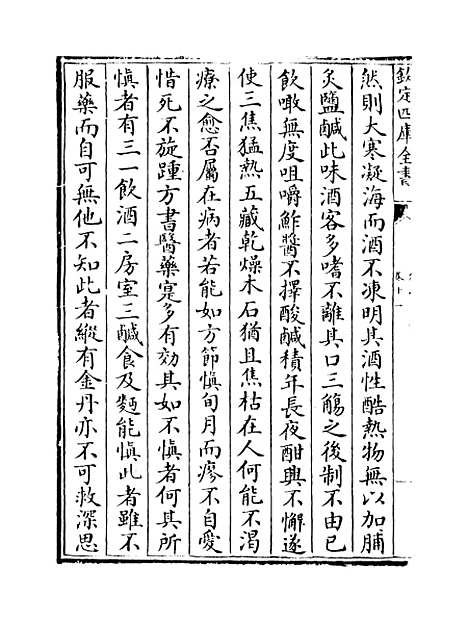 欽定四庫全書
卷十一
然則大寒凝海而酒不凍明其酒性酷熱物無以加脯
炙鹽鹹此味酒客多嗜不離其口三觴之後制不由己
飲噉無度咀嚼鮓醬不擇酸鹹積年長夜酣興不懈遂
使三焦猛熱五藏乾燥木石猶且焦枯在人何能不渴
療之愈否屬在病者若能如方節慎旬月而瘳不自愛
惜死不旋踵方書醫藥寔多有効其如不慎者何其所
慎者有三一飲酒二房室三鹹食及麵能慎此者雖不
服藥而自可無他不知此者縱有金丹亦不可救深思